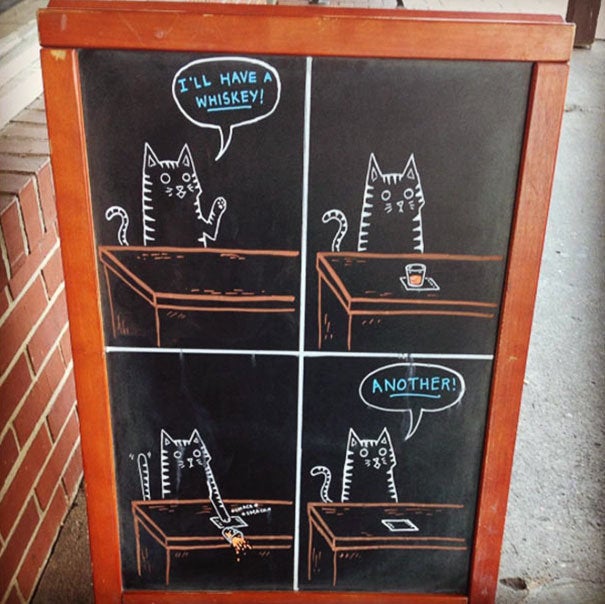 I'LL HAVE A
WHISKEY!
*SMACK*
ANOTHER!